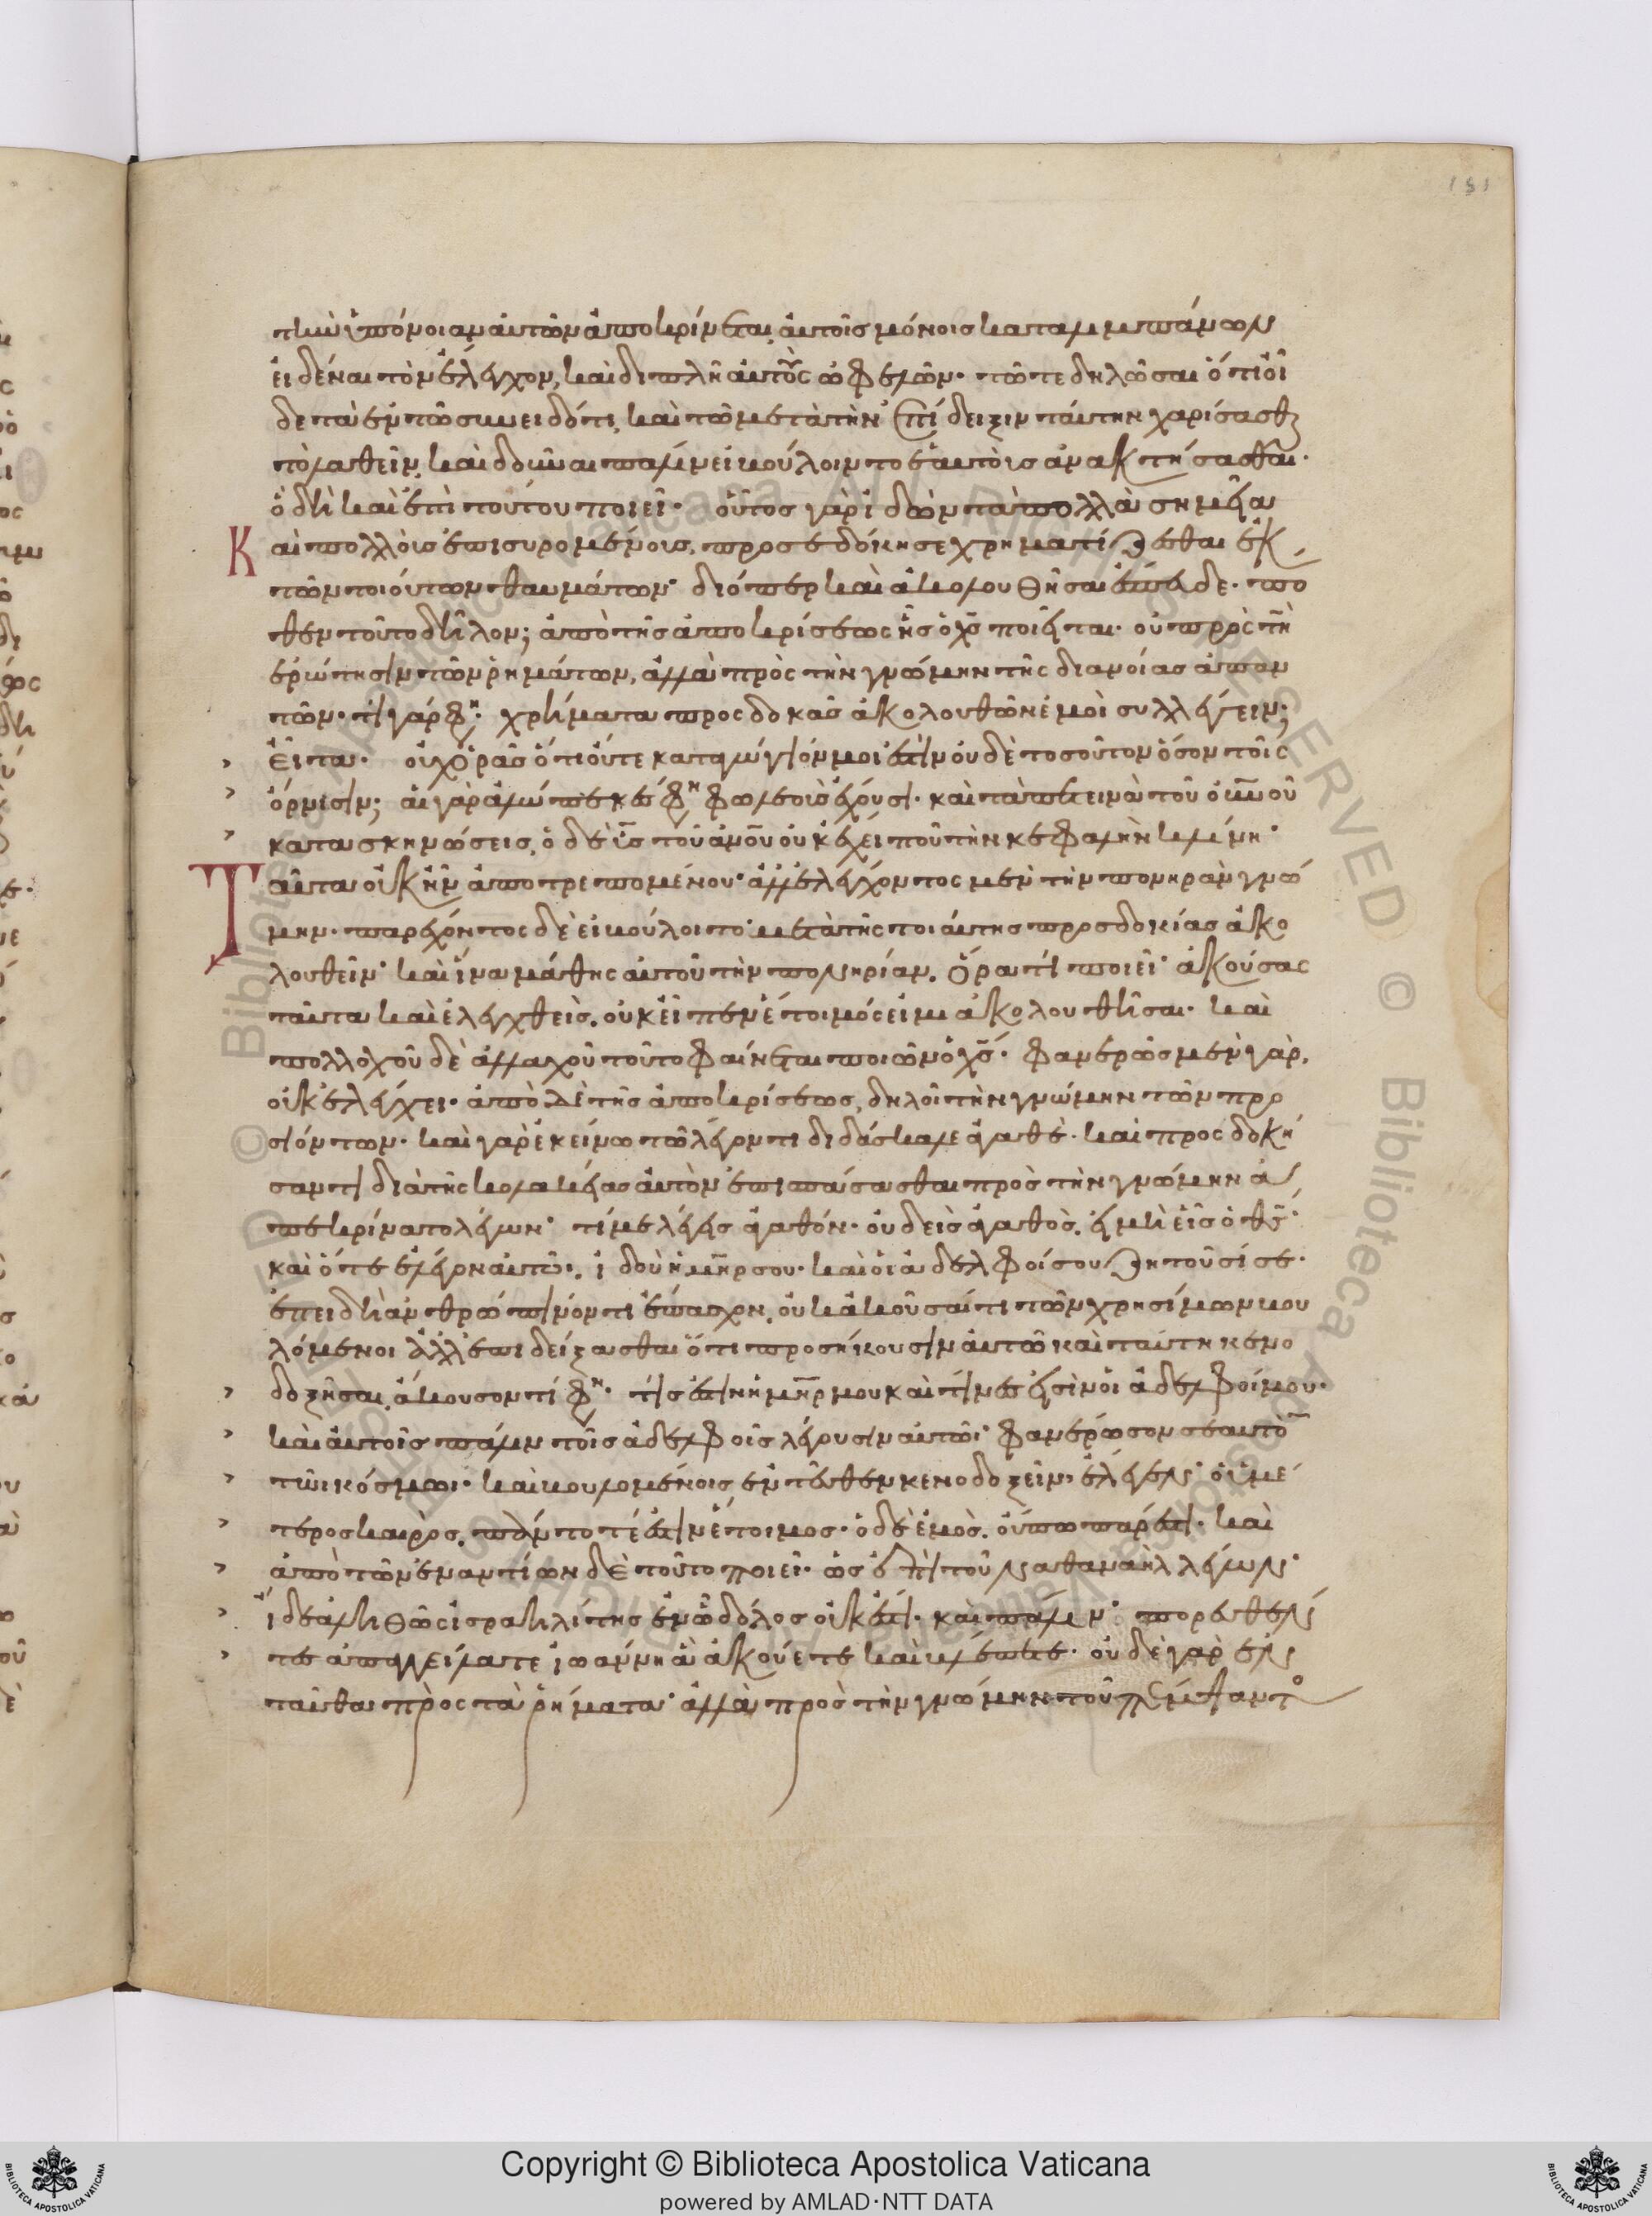 151
τὴν ὑπόνοιαν αὐτῶν ἀποκρίνεται, αὐτοῖς μόνοις καταλιμπάνων
εἰδέναι τὸν ἔλεγχον, καὶ διπλῆ αὐτοὺς ὠφελῶν· τῶ τε δηλῶσαι ὅτι οἶ
δε τὰ ἐν τῶ συνειδότι, καὶ τῶ μετὰ τὴν ἐπίδειξιν ταύτην χαρίσασθαι
τὸ λαθεῖν, καὶ δοῦναι πάλιν εἰ βούλοιντο ἑαυτοὺς ἀνακτήσασθαι·
ὃ δὴ καὶ ἐπὶ τούτου ποιεῖ· οὗτος γὰρ ἰδὼν τὰ πολλὰ σημεῖα
Καὶ πολλοὺς ἐπισυρομένους, προσεδόκησε χρηματίζεσθαι ἐκ
τῶν τοιούτων θαυμάτων· διόπερ καὶ ἀκολουθῆσαι ἔσπευδε· πό
θεν τοῦτο δῆλον; ἀπὸ τῆς ἀποκρίσεως ἧς ὁ χς ποιεῖται· οὐ πρὸς τὴν
ἐρώτησιν τῶν ρημάτων, ἀλλὰ πρὸς τὴν γνώμην τῆς διανοίας ἀπαν
τῶν· τί γάρ φη· χρήματα προσδοκᾶς ἀκολουθῶν ἐμοὶ συλλέγειν;
Εἶτα· οὐχ ὁρᾶς ὅτι οὔτε καταγώγιόν μοι ἐστὶν οὐδὲ τοσοῦτον ὅσον τοῖς
ὄρνισιν; αἱ γὰρ ἀλώπεκές φη φωλεοὺς ἔχουσι· καὶ τὰ πετεινὰ τοῦ οὐνου
κατασκηνώσεις, ὁ δὲ υς τοῦ ανου οὐκ ἔχει ποῦ τὴν κεφαλὴν κλίνη·
Ταῦτα οὐκ ἦν ἀποτρεπομένου· ἀλλ' ἐλέγχοντος μὲν τὴν πονηρὰν γνώ
μην· παρέχοντος δὲ εἰ βούλοιτο μετὰ τῆς τοιαύτης προσδοκίας ἀκο
λουθεῖν· καὶ ἵνα μάθης αὐτοῦ τὴν πονηρίαν. Ὅρα τί ποιεῖ· ἀκούσας
ταῦτα καὶ ἐλεγχθεὶς. οὐκ εἶπεν ἕτοιμός εἰμι ἀκολουθῆσαι· καὶ
πολλαχοῦ δὲ ἀλλαχοῦ τοῦτο φαίνεται ποιῶν ὁ χς· φανερῶς μὲν γὰρ,
οὐκ ἐλέγχει· ἀπὸ δὲ τῆς ἀποκρίσεως, δηλοῖ τὴν γνώμην τῶν προ
σιόντων· καὶ γὰρ ἐκείνω τῶ λέγοντι διδάσκαλε ἀγαθὲ· καὶ προσδοκή
σαντι διὰ τῆς κολακείας αὐτὸν ἐπισπάσασθαι πρὸς τὴν γνώμην ἀ
πεκρίνατο λέγων· τί με λέγεις ἀγαθόν· οὐδεὶς ἀγαθὸς. εἰ μὴ εἷς ὁ θς·
καὶ ὅτε ἔλεγον αὐτῶ. ἰδοὺ ἡ μηρ σου· καὶ οἱ ἀδελφοί σου ζητοῦσί σε·
ἐπειδὴ ἀνθρώπινόν τι ἔπασχον, οὐκ ἀκοῦσαί τι τῶν χρησίμων βου
λόμενοι ἀλλ' ἐπιδείξασθαι ὅτι προσήκουσιν αὐτῶ καὶ ταύτη κενο
δοξῆσαι, ἄκουσον τί φη· τίς ἐστιν ἡ μηρ μου καὶ τίνες εἰσὶν οἱ ἀδελφοί μου·
καὶ αὐτοῖς πάλιν τοῖς ἀδελφοῖς λέγουσιν αὐτῶι· φανέρωσον σεαυτὸν
τῶι κόσμωι· καὶ βουλομένοις ἐντεῦθεν κενοδοξεῖν· ἔλεγεν· ὁ ὑμέ
τερος καιρὸς. πάντοτέ ἐστιν ἕτοιμος· ὁ δὲ ἐμὸς. οὔπω πάρεστι· καὶ
ἀπὸ τῶν ἐναντίων δὲ τοῦτο ποιεῖ· ὡς ἐπὶ τοῦ Ναθαναὴλ λέγων·
ἴδε ἀληθῶς ἰσραηλίτης ἐν ὧ δόλος οὐκ ἔστι· καὶ πάλιν· πορευθέν
τες ἀπαγγείλατε ἰωάννη ἃ ἀκούετε καὶ βλέπετε· οὐδὲ γὰρ ἐν
ταῦθα πρὸς τὰ ρήματα· ἀλλὰ πρὸς τὴν γνώμην τοῦ πέμψαντος
Copyright © Biblioteca Apostolica Vaticana
powered by AMLAD·NTT DATA